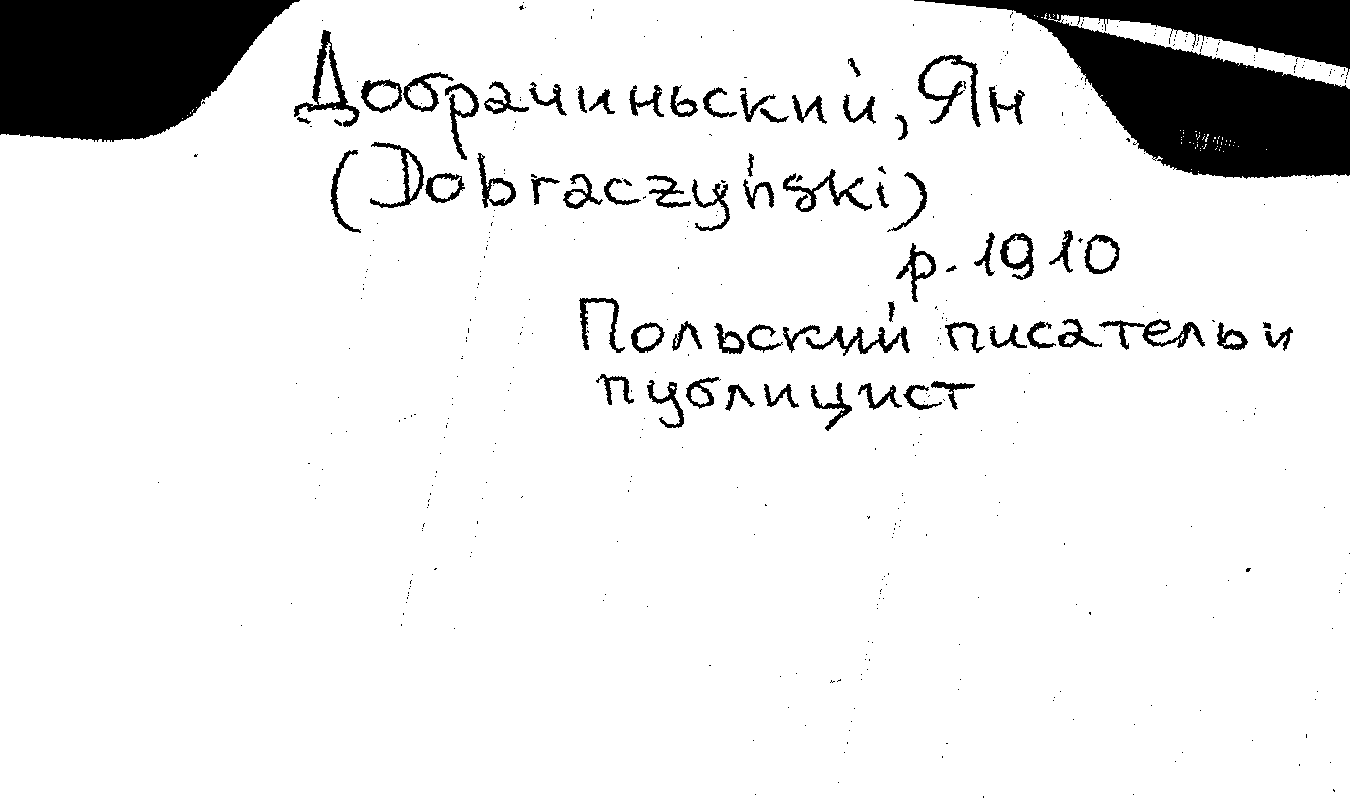 Добрачиньский, Ян
(Dobraczyński)
р. 1910
Польский писатель и
публицист